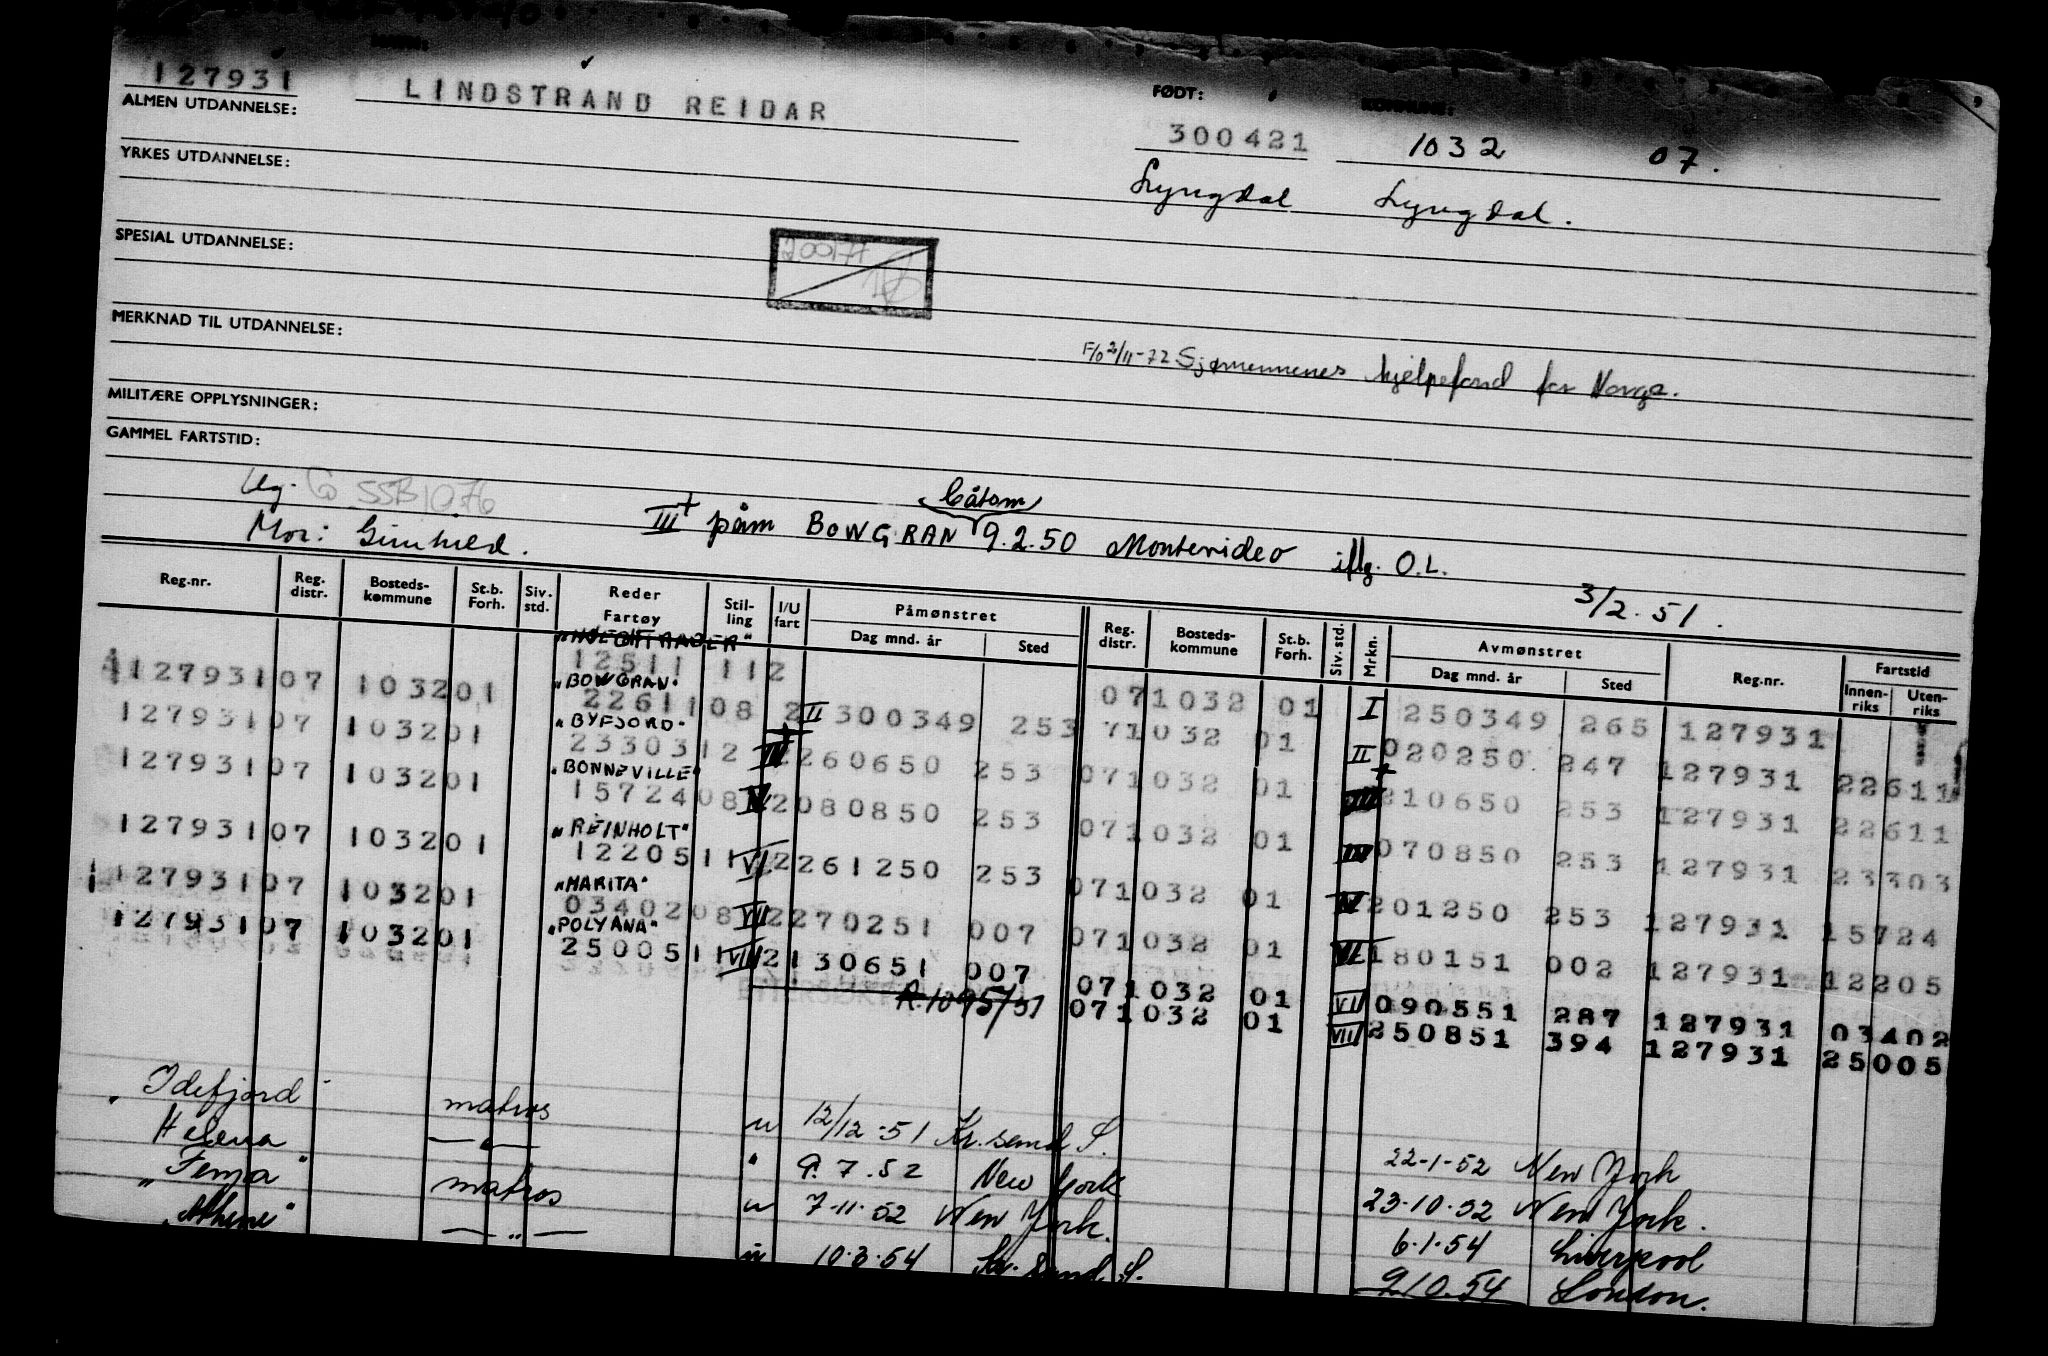 NAVN:
127931 LINDSTRAND REIDAR FØDT: KOMMUNE:
300421 1032 07.
ALMEN UTDANNELSE:
Lyngdal Lyngdal.
YRKES UTDANNELSE:
SPESIAL UTDANNELSE:
200177
MERKNAD TIL UTDANNELSE:
Sjømennenes hjelpefond for Norge.
MILITÆRE OPPLYSNINGER:
GAMMEL FARTSTID:
Ug. SSB1076
båtsm
Mor: Gunhild. III+ påm BOWGRAN 9.2.50 Montevideo iflg. O.L.
3/2.51.
Reg.nr. Reg. distr. Bosteds-kommune St.b. Forh. Siv. std. Reder Fartøy Stil-ling I/U fart Påmønstret Dag mnd. år Sted Reg. distr. Bosteds-kommune St.b. Forh. Siv. std. Mrkn. Avmønstret Dag mnd. år Sted Reg.nr. Fartstid Innen-riks Uten-riks
12511 112 071032 01 I 250349 265 127931
"BOWGRAN"
127931 07 1032 01 22611 08 2 II 300349 253 71032 01 II 020250 247 127931 22611
"BYFJORD"
127931 07 1032 01 23303 12 2 260650 253 071032 01 210650 253 127931 22611
"BONNEVILLE"
127931 07 1032 01 15724 08 2 080850 253 071032 01 070850 253 127931 23303
"REINHOLT"
127931 07 1032 01 12205 11 VI 2 261250 253 071032 01 201250 253 127931 15724
"MARITA"
127931 07 1032 01 03402 08 VII 2 270251 007 071032 01 VI 180151 002 127931 12205
"POLYANA"
127931 07 1032 01 25005 11 VIII 2 130651 007 071032 01 VII 090551 287 127931 03402
R.1095/51 071032 01 VIII 250851 394 127931 25005
"Idefjord" matros u 12/12-51 Kr.sand S. 22-1-52 New York
Helena —"— " 9.7.52 New York 23-10-52 New York.
"Fenja" matros u 7-11-52 New York. 6.1.54 Liverpool
"Athene" —"— u 10.3.54 Kr.sand S. 9/10.54 London.